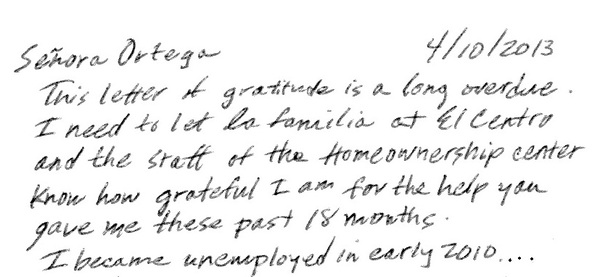 Señora Ortega 4/10/2013
This letter of gratitude is a long overdue.
I need to let la familia at El Centro
and the staff of the Homeownership center
Know how grateful I am for the help you
gave me these past 18 months.
I became unemployed in early 2010....